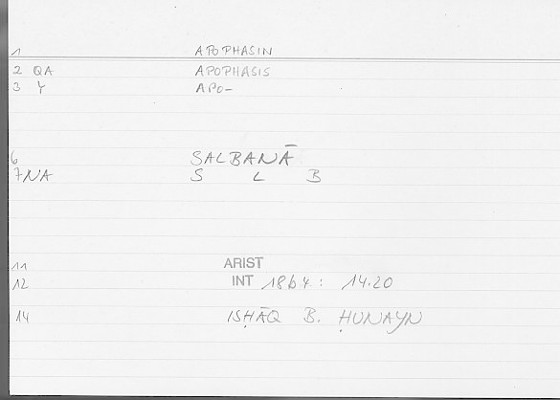 1 APOPHASIN
2 QA APOPHASIS
3 Y APO-
6 SALBANĀ
7 NA S L B
11 ARIST
12 INT 18b4: 14.20
14 ISḤĀQ B. ḤUNAYN